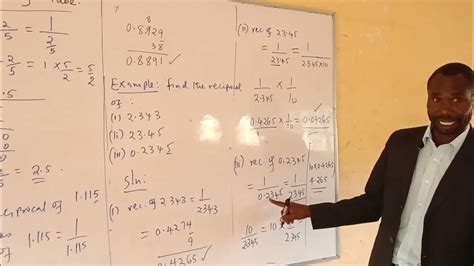 2/5 = 1/(2/5)
2/5 = 1 × 5/2 = 5/2
= 2.5
reciprocal of 1.115
1.115 = 1/1.115
8
0.8929
38
0.8891 ✓
Example: find the reciprocal
of :
(i) 2.343
(ii) 23.45
(iii) 0.2345
Sln:
(i) rec. of 2.343 = 1/2.343
= 0.4274
9
0.4265 ✓
(ii) rec of 23.45
= 1/23.45 = 1/2.345×10
1/2.345 × 1/10
0.4265 × 1/10 = 0.04265
(iii) rec. of 0.2345
= 1/0.2345 = 1/2.345
10/2.345 = 10 × 1/2.345
10×0.4265
4.265